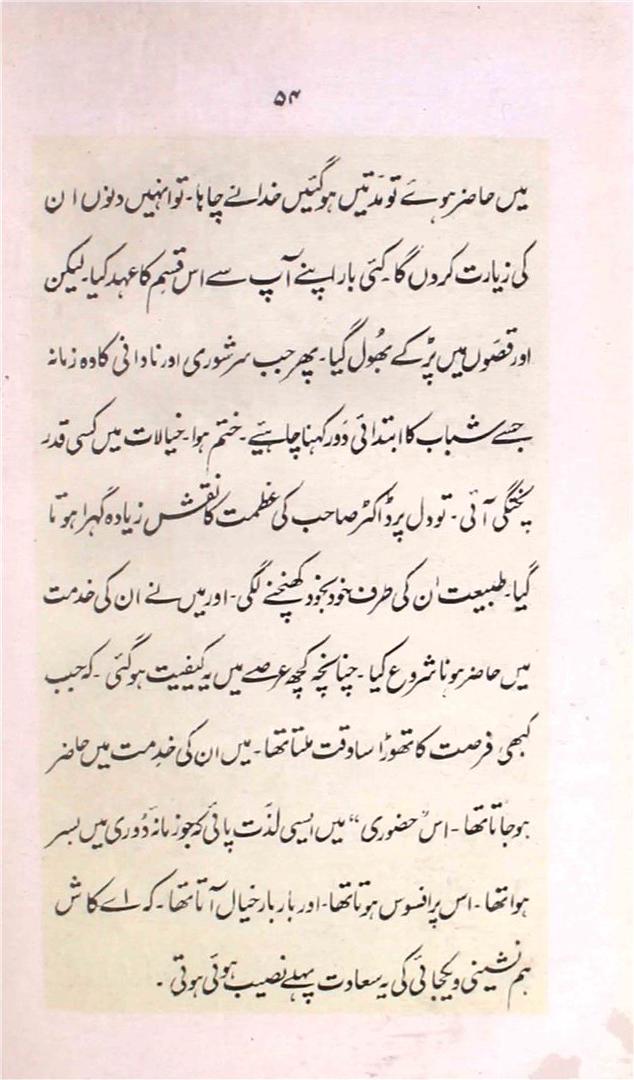 ۵۴
میں حاضر ہوئے تو مدّتیں ہوگئیں خدا نے چاہا۔ تو انہیں دنوں ان
کی زیارت کروں گا۔ کئی بار اپنے آپ سے اس قسم کا عہد کیا۔ لیکن
اور قصّوں میں پڑ کے بھُول گیا۔ پھر جب سرشوری اور نادانی کا وہ زمانہ
جسے شباب کا ابتدائی دَور کہنا چاہیے۔ ختم ہوا۔ خیالات میں کسی قدر
پختگی آئی۔ تو دل پر ڈاکٹر صاحب کی عظمت کا نقش زیادہ گہرا ہوتا
گیا۔ طبیعت ان کی طرف خود بخود کھنچنے لگی۔ اور میں نے ان کی خدمت
میں حاضر ہونا شروع کیا۔ چنانچہ کچھ عرصے میں یہ کیفیت ہوگئی۔ کہ جب
کبھی فرصت کا تھوڑا سا وقت ملتا تھا۔ میں ان کی خدمت میں حاضر
ہوجاتا تھا۔ اس "حضوری" میں ایسی لذّت پائی کہ جو زمانہ دُوری میں بسر
ہوا تھا۔ اس پر افسوس ہوتا تھا۔ اور بار بار خیال آتا تھا۔ کہ اے کاش
ہم نشینی و یکجائی کی یہ سعادت پہلے نصیب ہوئی ہوتی۔